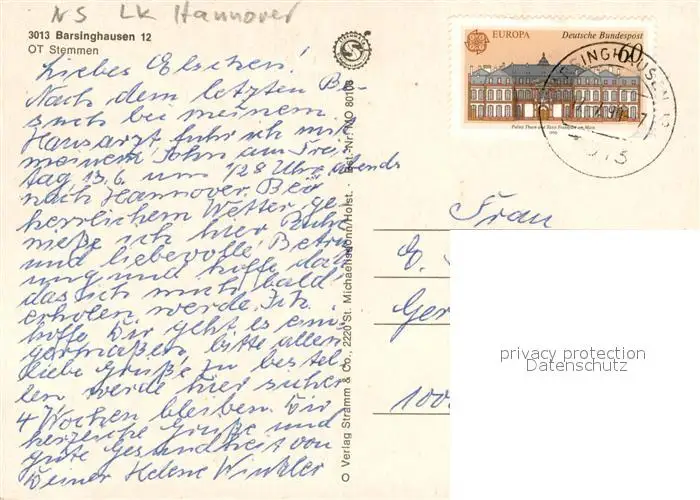 NS LK Hannover
3013 Barsinghausen 12
OT Stemmen
Liebes Elschen!
Nach dem letzten Be-
such bei meinem
Hausarzt fuhr ich mit
meinem Sohn am Frei-
tag 13.6. um 1/28 Uhr abends
nach Hannover. Bei
herrlichem Wetter ge-
nieße ich hier Ruhe
und liebevolle Betreu
ung und hoffe doch
das ich mich bald
erholen werde. Ich
hoffe Dir geht es eini
germaßen, bitte allen
liebe Grüße zu bestel-
len werde hier sicher
4 Wochen bleiben. Dir
herzliche Grüße und
gute Gesundheit von
Deiner Helene Winkler
© Verlag Stramm & Co., 2220 St. Michaelisdonn/Holst. · Best.-Nr. MO 80108
EUROPA Deutsche Bundespost
60
Palais Thurn und Taxis Frankfurt am Main
1990
BARSINGHAUSEN 12
3013
Frau
E.
Ger
100
privacy protection
Datenschutz